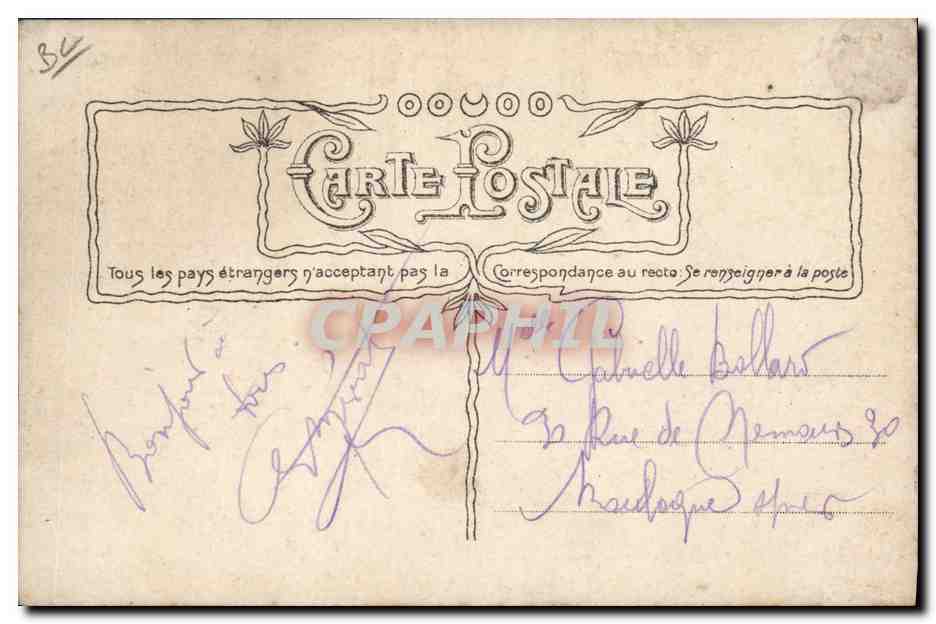 CARTE POSTALE
Tous les pays étrangers n'acceptant pas la Correspondance au recto: Se renseigner à la poste
CPAPHIL
Bonjour à
tous
Mlle Gabrielle Bollard
30 Rue de Nemours 30
Boulogne s/mer